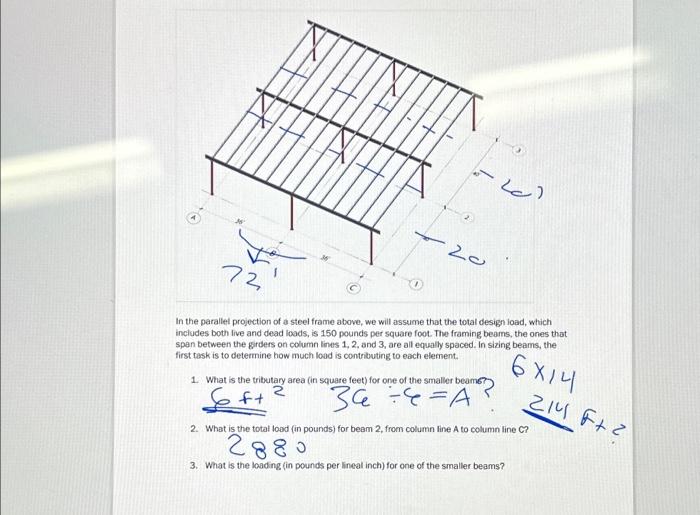 3
20
2
20
A
36'
B
36'
C
1
72'
In the parallel projection of a steel frame above, we will assume that the total design load, which
includes both live and dead loads, is 150 pounds per square foot. The framing beams, the ones that
span between the girders on column lines 1, 2, and 3, are all equally spaced. In sizing beams, the
first task is to determine how much load is contributing to each element.
1. What is the tributary area (in square feet) for one of the smaller beams?
6 x 14
6 ft 2
2. What is the total load (in pounds) for beam 2, from column line A to column line C?
2880
3. What is the loading (in pounds per lineal inch) for one of the smaller beams?